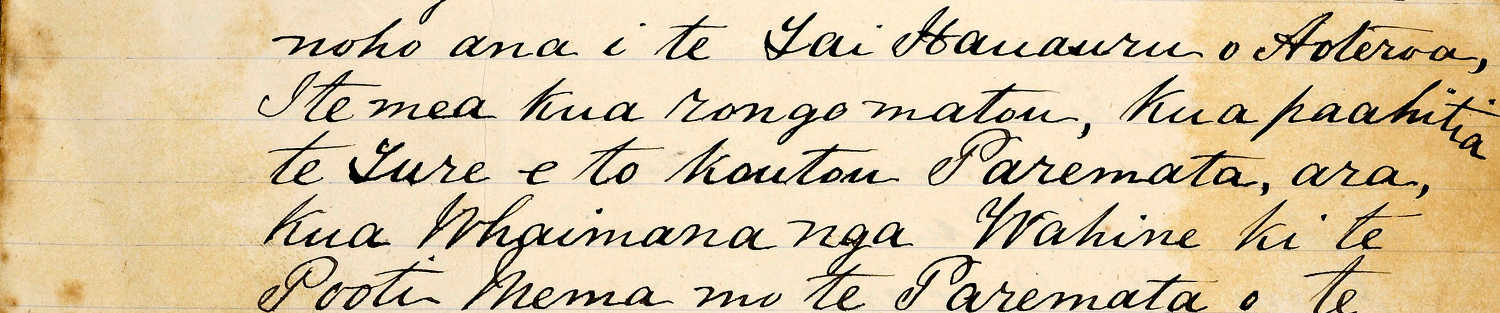 noho ana i te Tai Hauauru o Aoteroa,
I te mea kua rongo matou, kua paahitia
te Ture e to koutou Paremata, ara,
kua Whaimana nga Wahine ki te
Pooti Mema mo te Paremata o te